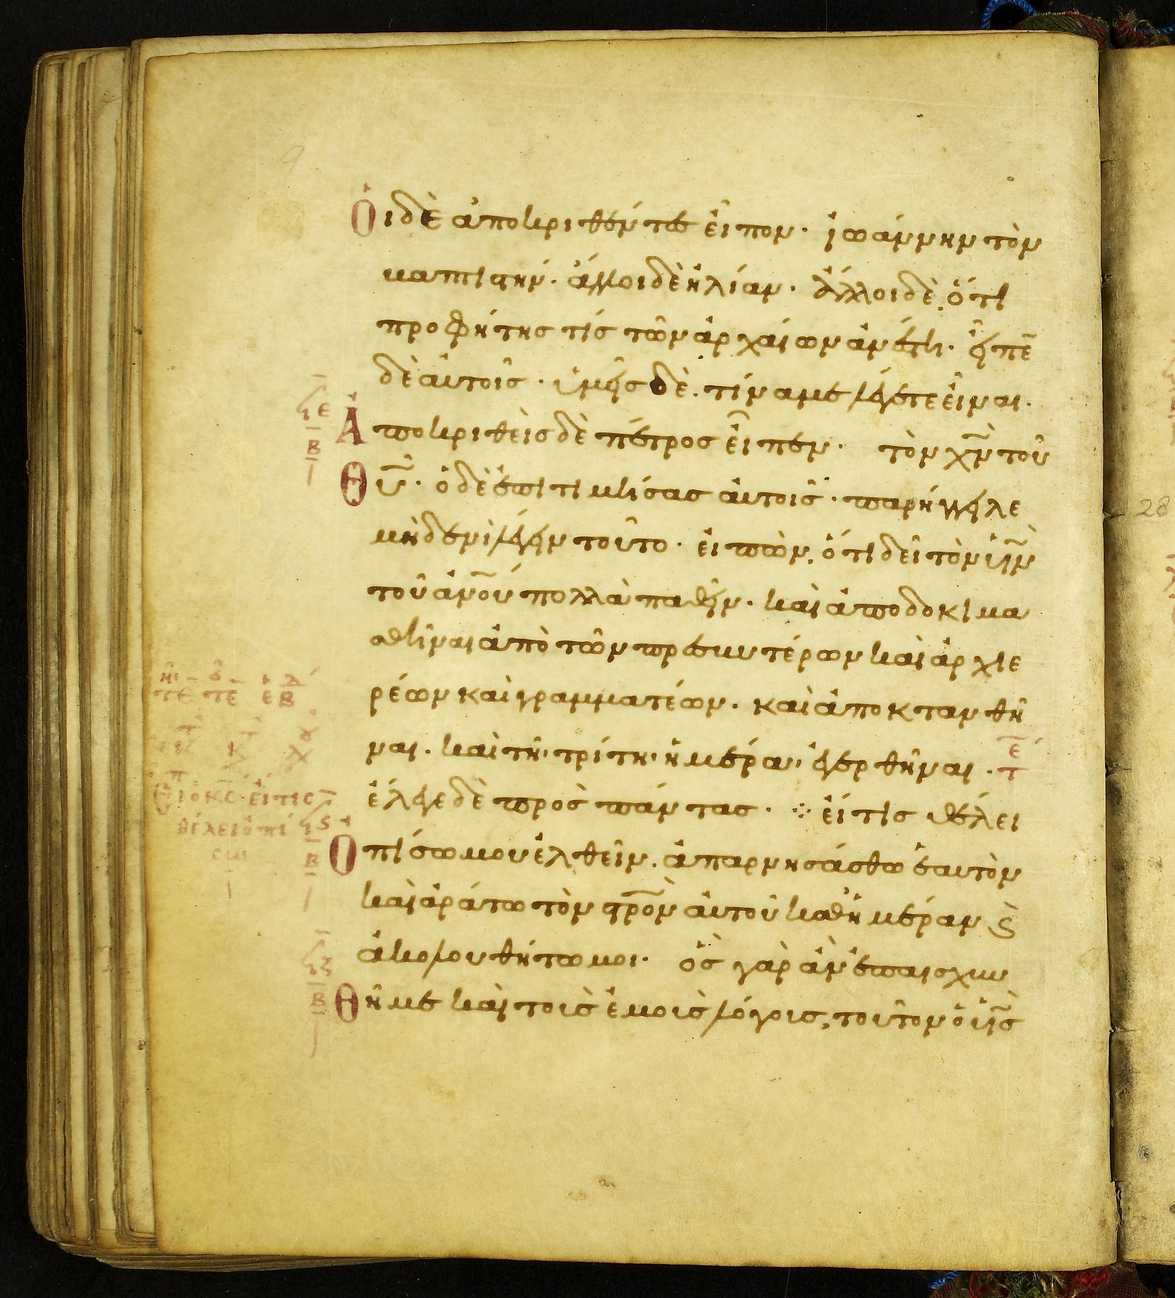 Ὁι δὲ ἀποκριθέντες εἶπον· ἰωάννην τὸν
βαπτιστήν· ἄλλοι δὲ ἠλίαν· ἄλλοι δὲ, ὅτι
προφήτης τίς τῶν ἀρχαίων ἀνέστη· εἶπε
δὲ αὐτοῖς· ὑμεῖς δὲ, τίνα με λέγετε εἶναι·
Ἀποκριθεὶς δὲ πέτρος εἶπεν· τὸν χν τοῦ
Θυ· ὁ δὲ ἐπιτιμήσας αὐτοῖς· παρήγγειλε
μηδενὶ λέγειν τοῦτο· εἰπὼν, ὅτι δεῖ τὸν υἱν
τοῦ ἀνου πολλὰ παθεῖν· καὶ ἀποδοκιμα
σθῆναι ἀπὸ τῶν πρεσβυτέρων καὶ ἀρχιε
ρέων καὶ γραμματέων· καὶ ἀποκτανθῆ
ναι· καὶ τῇ τρίτῃ ἡμέρᾳ ἐγερθῆναι·
ἔλεγε δὲ πρὸς πάντας· εἴ τις θέλει
Ὀπίσω μου ἐλθεῖν, ἀπαρνησάσθω ἑαυτὸν
καὶ ἀράτω τὸν σρον αὐτοῦ καθημέραν ϗ
ἀκολουθήτω μοι· ὃς γὰρ ἂν ἐπαισχυν
Θῇ με καὶ τοὺς ἐμοὺς λόγους, τοῦτον ὁ υἱς